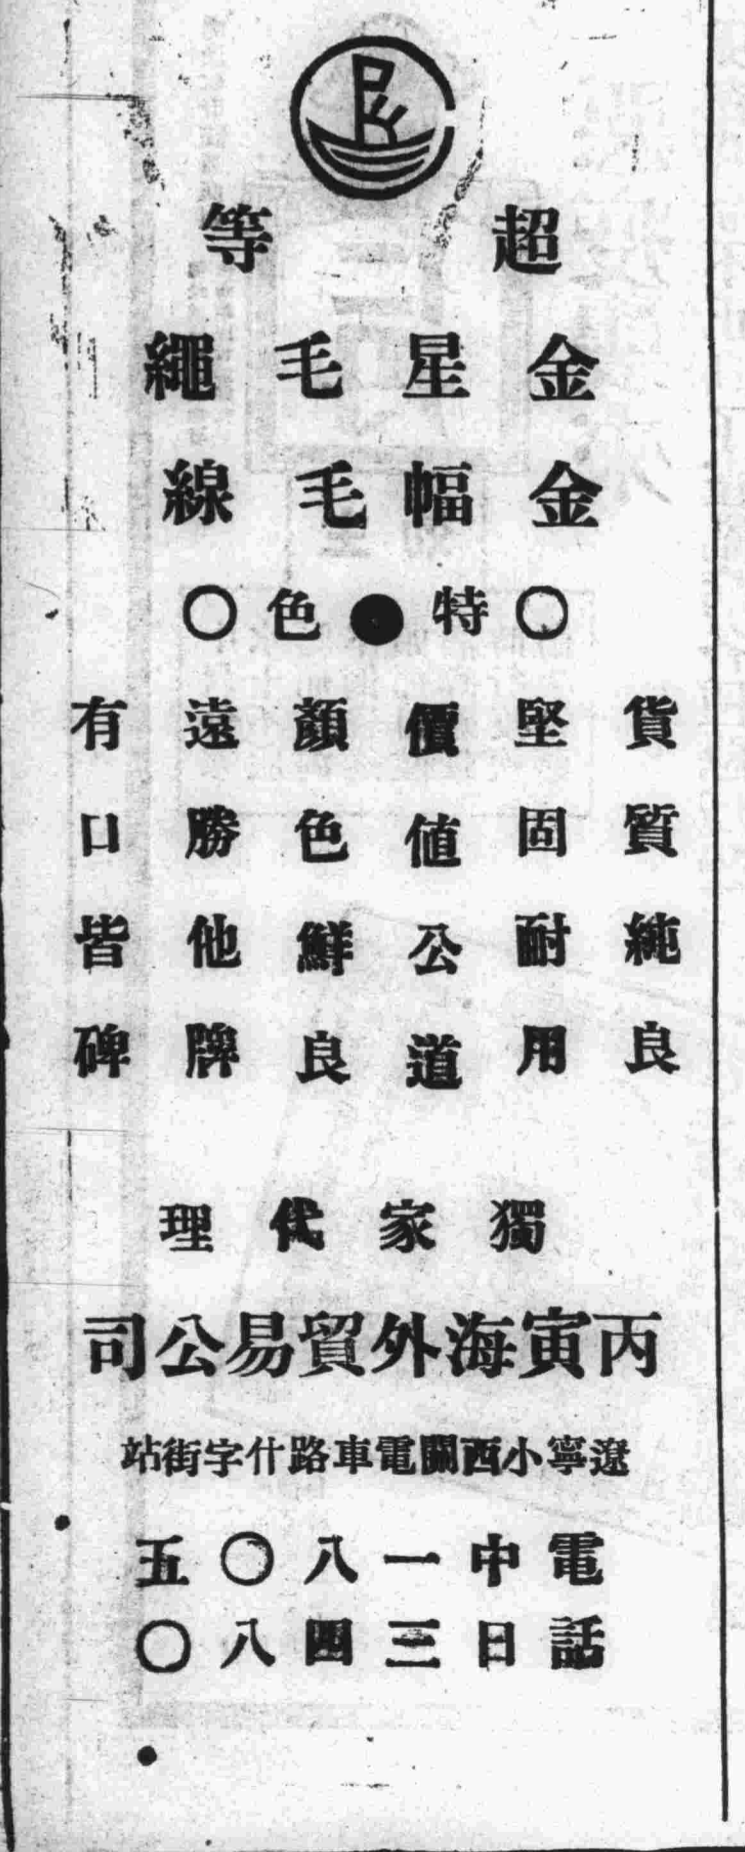 超等
金星毛繩
金幅毛線
○特●色○
貨質純良
堅固耐用
價值公道
顏色鮮良
遠勝他牌
有口皆碑
獨家代理
丙寅海外貿易公司
遼寧小西關電車路什字街站
電話
中一八〇五
日三四八〇